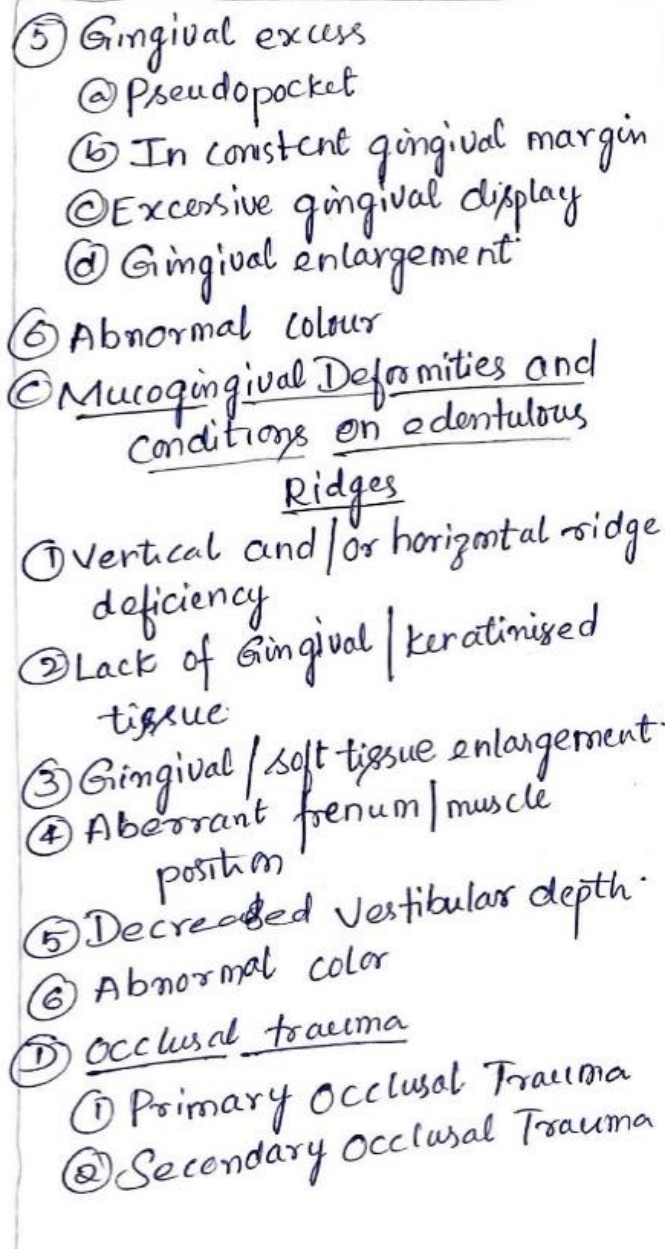 ⑤ Gingival excess
ⓐ Pseudopocket
ⓑ In constent gingival margin
ⓒ Excessive gingival display
ⓓ Gingival enlargement
⑥ Abnormal colour
Ⓒ Mucogingival Deformities and
conditions on edentulous
Ridges
① Vertical and/or horizontal ridge
deficiency
② Lack of Gingival / keratinised
tissue
③ Gingival / soft tissue enlargement.
④ Aberrant frenum / muscle
position
⑤ Decreased Vestibular depth.
⑥ Abnormal color
Ⓓ Occlusal trauma
① Primary Occlusal Trauma
② Secondary Occlusal Trauma